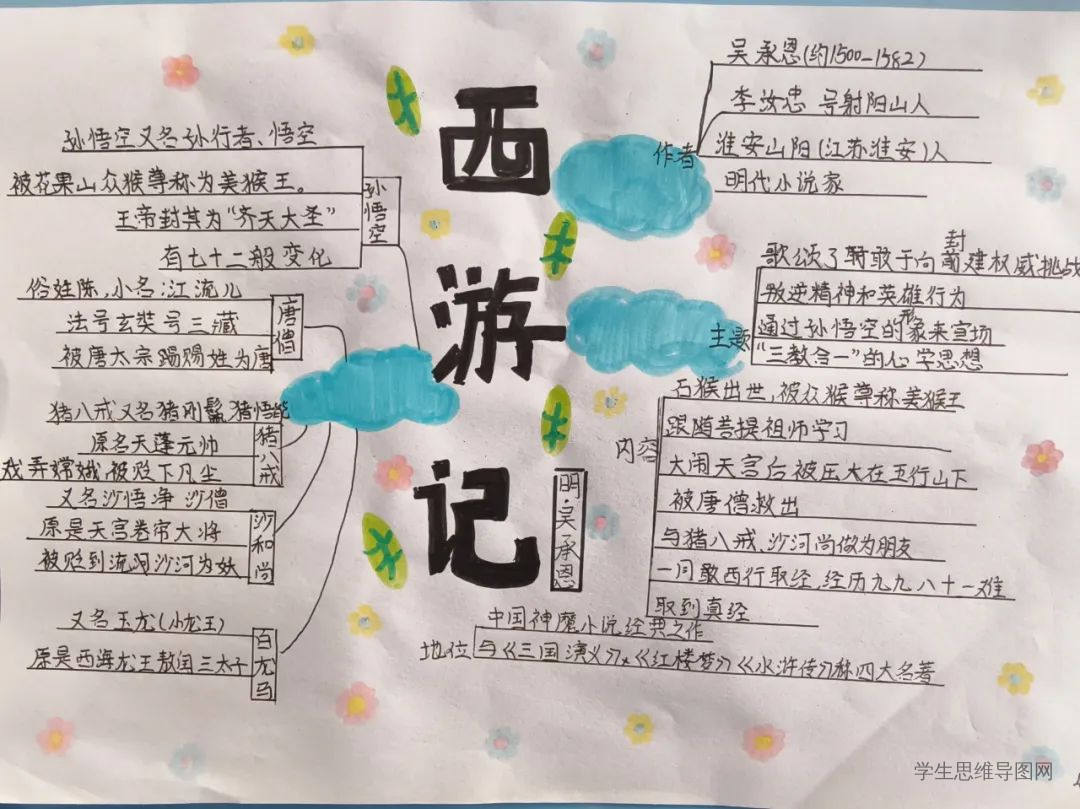 西游记
明·吴承恩
作者
吴承恩(约1500-1582)
李汝忠 号射阳山人
淮安山阳(江苏淮安)人
明代小说家
主题
歌颂了敢于向封建权威挑战
叛逆精神和英雄行为
通过孙悟空的形象来宣场
“三教合一”的心学思想
内容
石猴出世,被众猴尊称美猴王
跟随菩提祖师学习
大闹天宫后被压大在五行山下
被唐僧救出
与猪八戒,沙河尚做为朋友
一同敢西行取经,经历九九八十一难
取到真经
地位
中国神魔小说经典之作
与《三国演义》、《红楼梦》《水浒传》称四大名著
孙悟空
孙悟空又名孙行者、悟空
被花果山众猴尊称为美猴王。
王帝封其为“齐天大圣”
有七十二般变化
唐僧
俗姓陈,小名:江流儿
法号玄奘号三藏
被唐太宗赐姓为唐
猪八戒
猪八戒又名猪刚鬣,猪悟能
原名天蓬元帅
戏弄嫦娥,被贬下凡尘
沙和尚
又名沙悟净 沙僧
原是天宫卷帘大将
被贬到流沙河为妖
白龙马
又名玉龙(小龙王)
原是西海龙王敖闰三太子
学生思维导图网